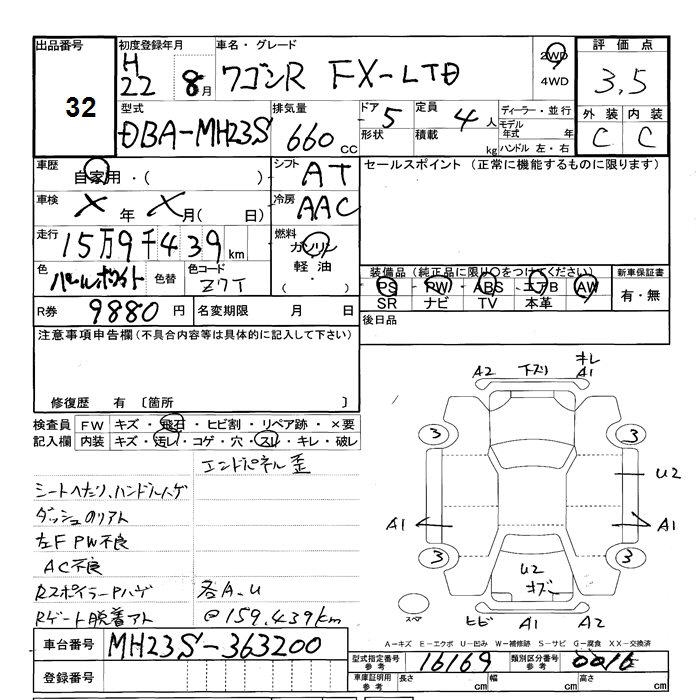 出品番号 初度登録年月 車名・グレード 評価点
32
H22 8月 ワゴンR FX-LTD 2WD 4WD 3.5
型式 排気量 ドア 5 定員 4人 ディーラー・並行 外装 内装
DBA-MH23S 660cc 形状 積載 kg モデル年式 年 C C
ハンドル 左・右
車歴 自家用・( ) シフト AT セールスポイント(正常に機能するものに限ります)
車検 X年 X月( 日) 冷房 AAC
走行 15万9千439km 燃料 ガソリン 軽油・( )
色 パールホワイト 色替 色コード Z7T
装備品(純正品に限り○をつけてください) 新車保証書
PS PW ABS エアB AW 有・無
SR ナビ TV 本革
R券 9880円 名変期限 月 日 後日品
注意事項申告欄(不具合内容等は具体的に記入して下さい)
修復歴 有 〔箇所 〕
検査員 FW キズ・飛石・ヒビ割・リペア跡・×要
記入欄 内装 キズ・汚レ・コゲ・穴・スレ・キレ・破レ
エンドパネル歪
シートヘタリ、ハンドルハゲ
ダッシュのリアト
左F PW不良
AC不良
RスポイラーPハゲ 各A.U
Rゲート脱着アト @159,439km
A2 下ズリ キレ A1
3 3
U2
A1 A1
3 3
U2
スペア ヒビ A1 A2
A－キズ E－エクボ U－凹み W－補修跡 S－サビ G－腐食 XX－交換済
車台番号 MH23S-363200
型式指定番号 参考 16169 類別区分番号 参考 0016
登録番号
車庫証明用 参考 長さ cm 幅 cm 高さ cm